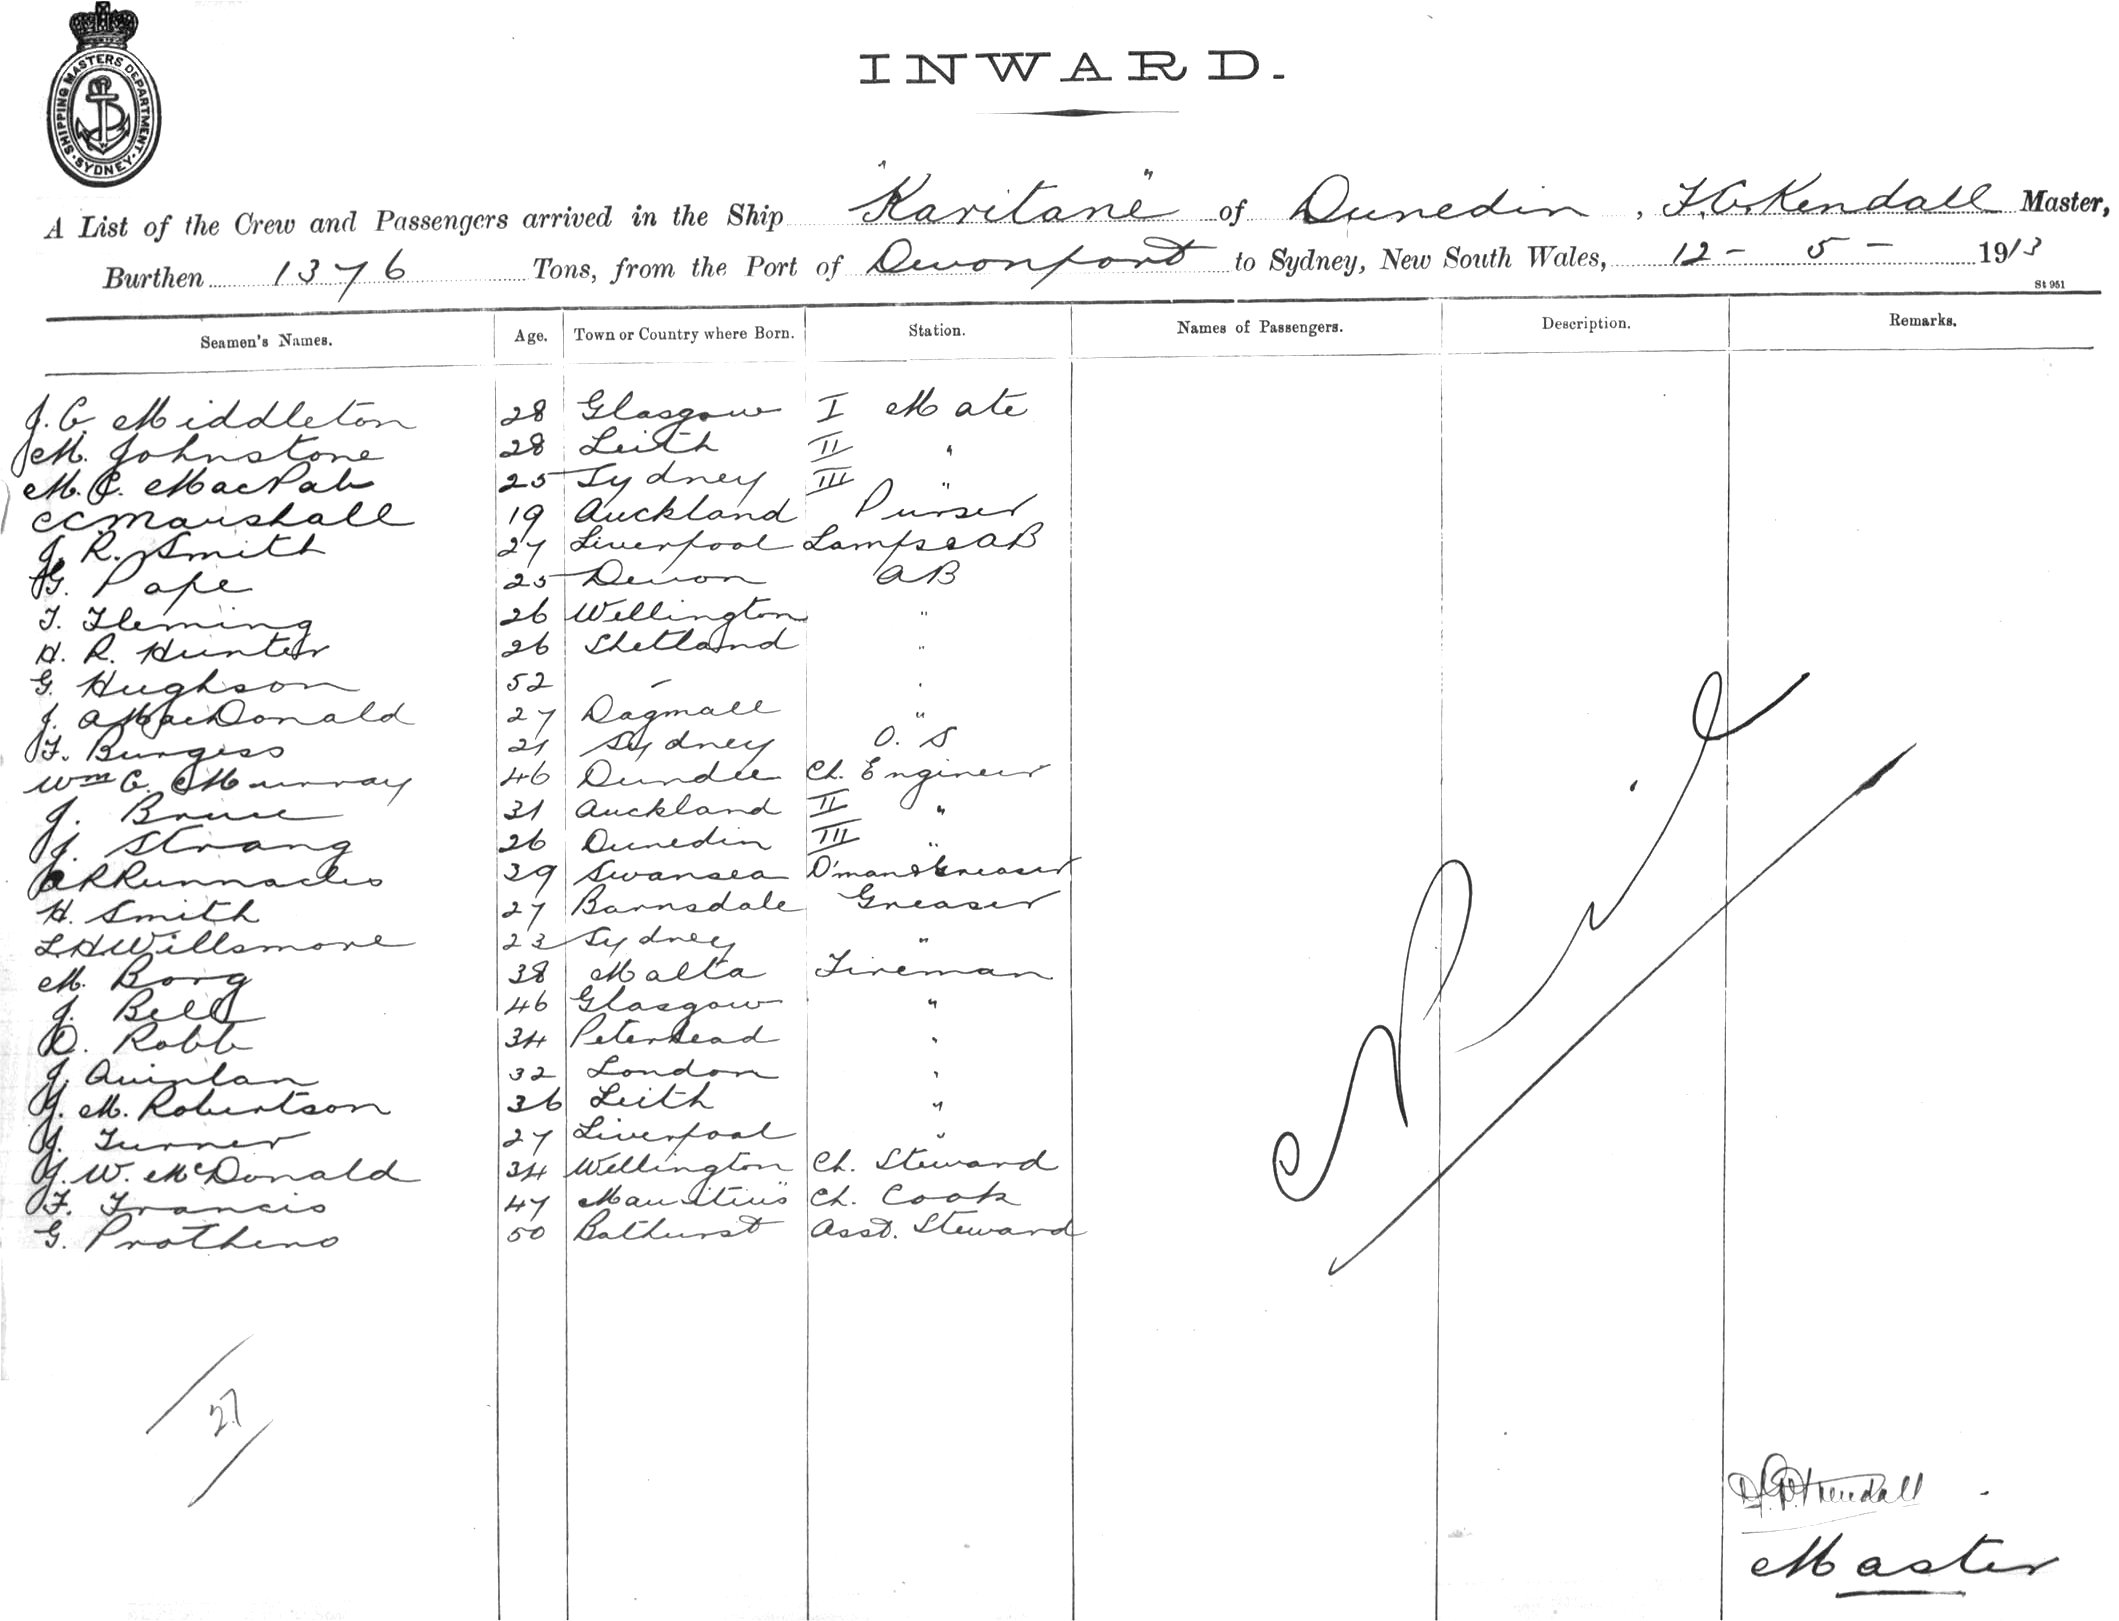 SHIPPING MASTERS DEPARTMENT
SYDNEY
INWARD.
A List of the Crew and Passengers arrived in the Ship "Karitane" of Dunedin, F.G. Kendall Master,
Burthen 1376 Tons, from the Port of Devonport to Sydney, New South Wales, 12 - 5 - 1913
St 951
Seamen's Names. Age. Town or Country where Born. Station. Names of Passengers. Description. Remarks.
J. G. Middleton 28 Glasgow I Mate
M. Johnstone 28 Leith II "
M. C. MacNab 25 Sydney III "
C C Marshall 19 Auckland Purser
J. R. Smith 27 Liverpool Lamps & AB
G. Pape 25 Devon AB
T. Fleming 26 Wellington "
H. R. Hunter 26 Shetland "
G. Hughson 52 - "
J. A MacDonald 27 Dagmall "
F. Burgess 21 Sydney O. S
Wm G. Murray 46 Dundee Ch. Engineer
J. Bruce 31 Auckland II "
J. Strang 26 Dunedin III "
Runnacles 39 Swansea D'man & Greaser
H. Smith 27 Barnsdale Greaser
L.H. Willsmore 23 Sydney "
M. Borg 38 Malta Fireman
J. Bell 46 Glasgow "
D. Robb 34 Peterhead "
J. Quinlan 32 London "
J. M. Robertson 36 Leith "
J. Turner 27 Liverpool "
J. W. McDonald 34 Wellington Ch. Steward
F. Francis 47 Mauritius Ch. Cook
G. Prothero 50 Bathurst Asst. Steward
Nil
27
Kendall
Master